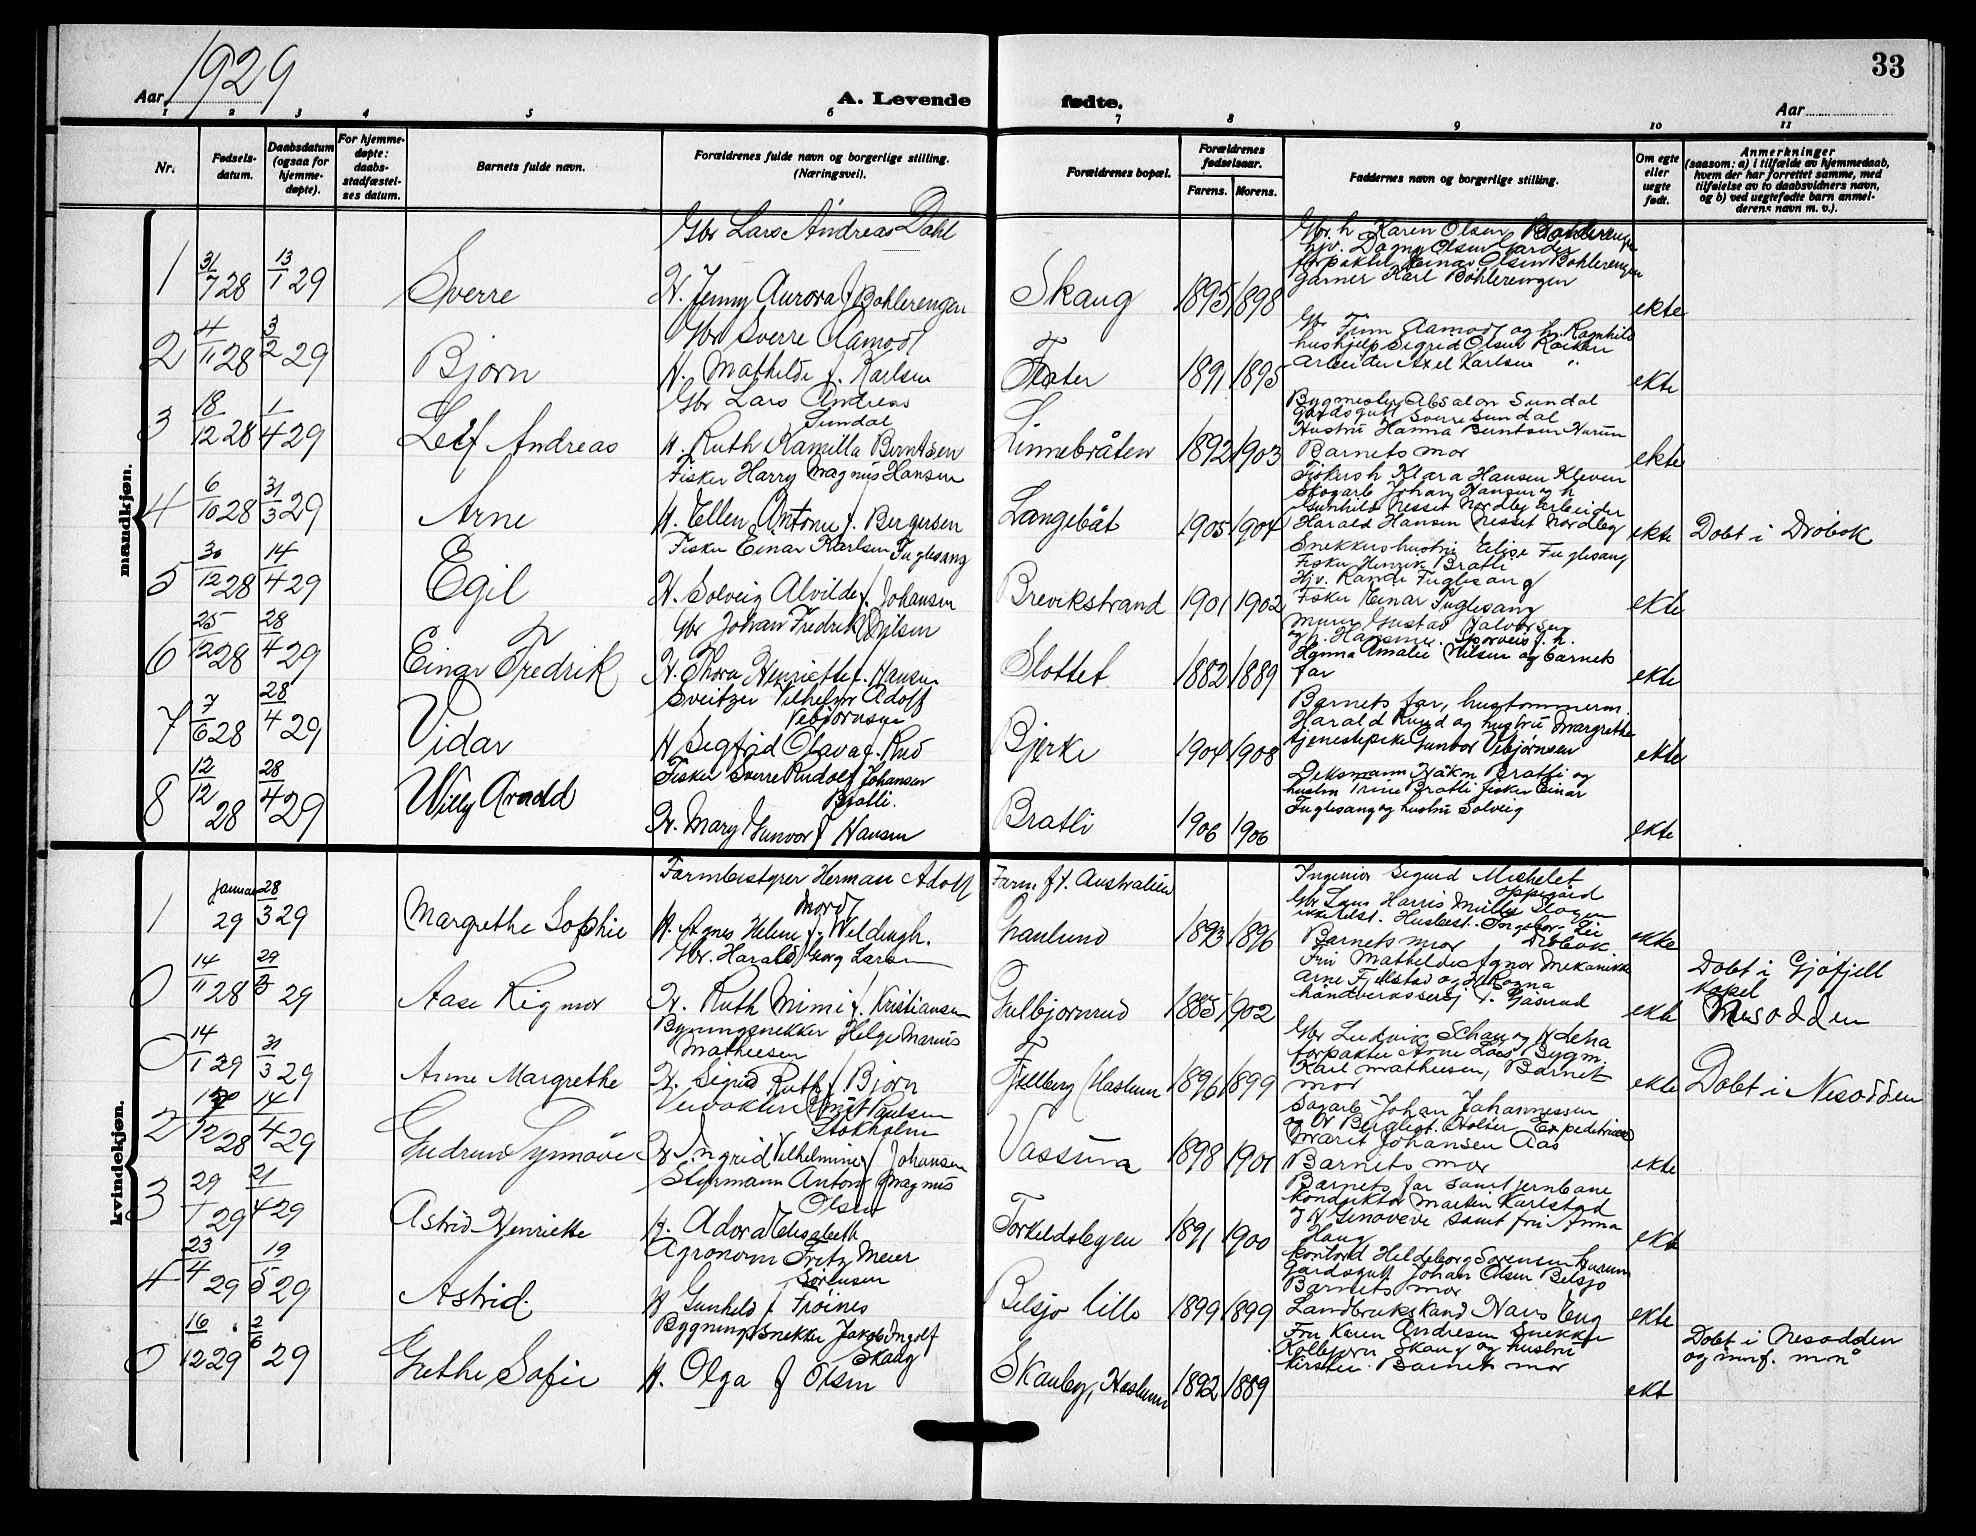 1929
33
Aar
A. Levende fødte.
Aar
1 2 3 4 5 6 7 8 9 10 11
Nr.
Fødsels-
datum.
Daabsdatum
(ogsaa for
hjemme-
døpte).
For hjemme-
døpte:
daabs-
stadfæstel-
ses datum.
Barnets fulde navn.
Forældrenes fulde navn og borgerlige stilling.
(Næringsvei).
Forældrenes bopæl.
Forældrenes
fødselsaar.
Farens. Morens.
Faddernes navn og borgerlige stilling.
Om egte
eller
uegte
født.
Anmerkninger
(saasom: a) i tilfælde av hjemmedaab,
hvem der har forrettet samme, med
tilføielse av to daabsvidners navn,
og b) ved uegtefødte barn anmel-
derens navn m. v.).
mandkjøn.
1 31/7 28 13/1 29 Sverre
Gbr Lars Andreas Dahl
H. Jenny Aurora f. Bøhlerengen
Skaug 1895 1898
Gbr. h Karen Olsen Bøhlerengen
hjv. Dagny Olsen
forpakter Einar Olsen Bøhlerengen
Garner Karl Bøhlerengen
ekte
2 4/11 28 3/2 29 Bjørn
Gbr Sverre Aamodt
H. Mathilde f. Karlsen
Froter 1891 1895
Gbr Finn Aamodt og h. Ragnhild
hushjelp Sigrid Olsen Røiken
Arbeider Axel Karlsen "
ekte
3 18/12 28 1/4 29 Leif Andreas
Gbr Lars Andreas
Sundal
H. Ruth Kamilla Berntsen
Linnebråten 1892 1903
Bygmester Absalon Sundal
Gårdsgutt Sverre Sundal
Hustru Hanna Berntsen Hurum
Barnets mor
ekte
4 6/10 28 31/3 29 Arne
Fisker Harry Magnus Hansen
H. Ellen Antonie f. Bergersen
Langebåt 1905 1904
Fiskersh Klara Hansen Kleven
Skogarb Johan Hansen og h
Gunhild Nesset Nordby arbeider
Harald Hansen Nesset Nordby
ekte Døbt i Drøbak
5 30/12 28 14/4 29 Egil
Fisker Einar Karlsen Fuglesang
H. Solveig Alvilde f. Johansen
Brevikstrand 1901 1902
Snekkershustru Elise Fuglesang
Fisker Henrik Bratli
Hjv. Randi Fuglesang
Fisker Einar Fuglesang
ekte
6 25/12 28 28/4 29 Einar Fredrik
Gbr Johan Fredrik Nilsen
H. Thora Henriette f. Hansen
Slottet 1882 1889
Murer Gustav Halvorsen
og h. Hansine. Sporveisf. h.
Hanna Amalie Nilsen og barnets
far
ekte
7 7/6 28 28/4 29 Vidar
Sveitzer Vilhelm Adolf
Vebjørnsen
H Sigfrid Olava f. Rud
Bjerke 1904 1908
Barnets far, hustømmerm.
Harald Ruud og hustru Margrethe
tjenestepike Gunvor Vebjørnsen
ekte
8 12/12 28 28/4 29 Willy Arnold
Fisker Sverre Rudolf Johansen
Bratli.
H. Mary Gunvor f Hansen
Bratli 1906 1906
Deksmann Håkon Bratli og
hustru Trine Bratli fisker Einar
Fuglesang og hustru Solveig
ekte
kvindekjøn.
1 januar 29 28/3 29 Margrethe Sophie
Farmbestyrer Herman Adolf
Mordt
H. Agnes Helene f. Weldingh.
Farm f.t. Australien
Graulund 1893 1896
Ingeniør Sigurd Michelet
Oppegård
Gbr Lars Harris Skogen
Husbest. Ingeborg Lie
Barnets mor Drøbak
ekte
0 14/11 28 29/3 29 Aase Rigmor
Gbr. Harald Georg Larsen
H. Ruth Mimi f. Kristiansen
Gulbjørnrud 1885 1902
Fru Mathilde Agnor Mekaniker
Arne Fjellstad og H Ragna
ekte
Døbt i Gjøfjell
kapel
Nesodden
0 14/1 29 31/3 29 Anne Margrethe
Bygningsnekker Helge Marius
Mathiesen
H. Sigrid Ruth f Bjørn
Fjellberg (Haslum 1896 1899
Gbr Ludvig Schau og H Lena
forpakter Arne Løes Bygm.
Karl Matheisen, Barnets
mor
ekte Døbt i Nesodden
2 12 28 14/4 29 Gudrun Synnøve
Paulsen
Stokholm
H. Ingrid Vilhelmine f Johansen
Vassum 1898 1901
Sagarb Johan Johannessen
Marit Johansen Aas
Barnets mor
ekte
3 29/1 29 21/4 29 Astrid Henriette
Styrmann Anton Magnus
Olsen
H. Adora Elisabeth
Torkildsbyen 1891 1900
Barnets far samt jernbane
konduktør Martin Karlstad
og H Genoveve samt fru Anna
Haug
ekte
4 23/4 29 19/5 29 Astrid.
Agronom Fritz Meier
Sørensen
H Gunhild f Frøines
Belsjø lille 1899 1899
Kontord Heldeborg Sørensen Hurum
Gårdsgutt Johan Olsen Belsjø
Barnets mor
Landbrukskand Hans Eng
ekte
0 16/12 29 2/6 29 Grethe Sofie
Bygningssnekker Jakob Ingolf
Skaug
H. Olga f Olsen
Skauby, Haslum 1892 1889
Fru Karen Andresen Snekker
Kolbjørn Skaug og hustru
Kirsten. Barnets mor
ekte
Døbt i Nesodden